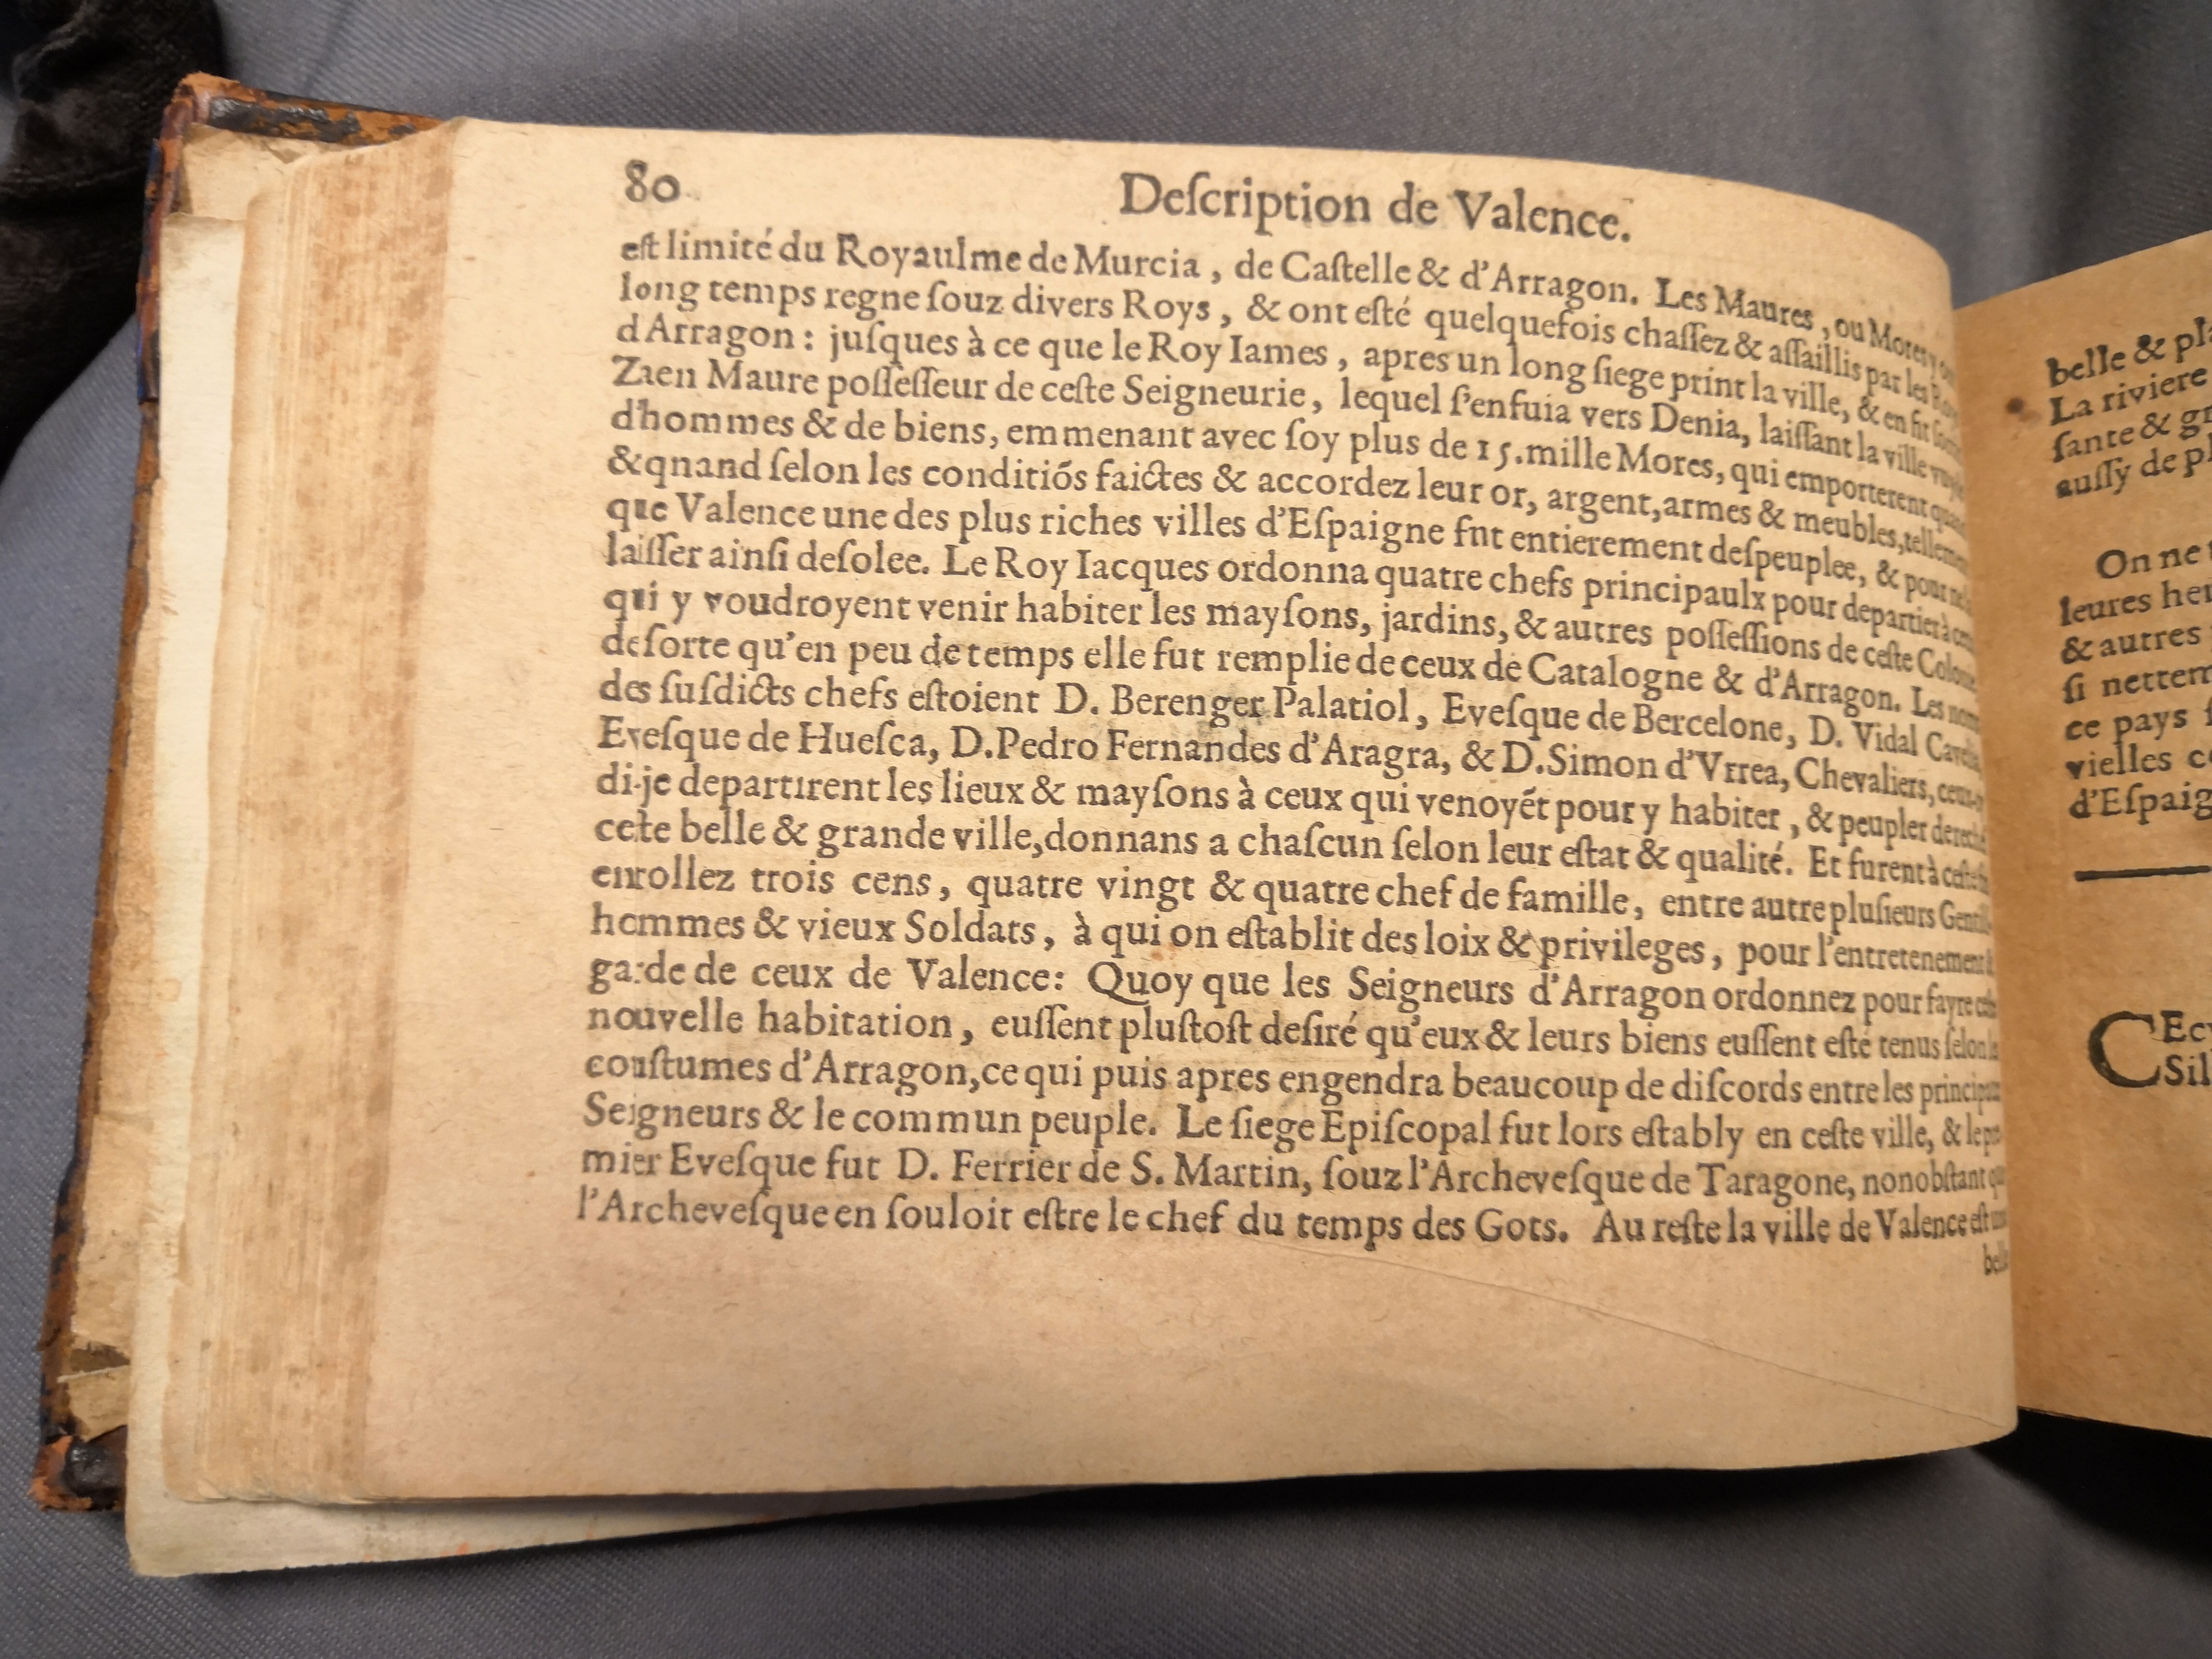 80
Deſcription de Valence.
eſt limité du Royaulme de Murcia, de Caſtelle & d'Arragon. Les Maures, ou Mores y
long temps regne ſouz divers Roys, & ont eſté quelquefois chaſſez & aſſaillis par les
d Arragon: juſques à ce que le Roy Iames, apres un long ſiege print la ville, & en fit
Zaen Maure poſſeſſeur de ceſte Seigneurie, lequel ſ'enfuia vers Denia, laiſſant la ville
d'hommes & de biens, emmenant avec ſoy plus de 15. mille Mores, qui emporterent quand
& qnand ſelon les conditiõs faictes & accordez leur or, argent, armes & meubles, tellement
que Valence une des plus riches villes d'Eſpaigne fnt entierement deſpeuplee, & pour
laiſſer ainſi deſolee. Le Roy Iacques ordonna quatre chefs principaulx pour departier à
qui y voudroyent venir habiter les mayſons, jardins, & autres poſſeſſions de ceſte
deſorte qu'en peu de temps elle fut remplie de ceux de Catalogne & d'Arragon. Les noms
des ſuſdicts chefs eſtoient D. Berenger Palatiol, Eveſque de Bercelone, D. Vidal
Eveſque de Hueſca, D. Pedro Fernandes d'Aragra, & D. Simon d'Vrrea, Chevaliers,
di-je departirent les lieux & mayſons à ceux qui venoyẽt pour y habiter, & peupler
cete belle & grande ville, donnans a chaſcun ſelon leur eſtat & qualité. Et furent à
enrollez trois cens, quatre vingt & quatre chef de famille, entre autre pluſieurs Gentil-
hommes & vieux Soldats, à qui on eſtablit des loix & privileges, pour l'entretenement &
garde de ceux de Valence: Quoy que les Seigneurs d'Arragon ordonnez pour fayre
nouvelle habitation, euſſent pluſtoſt deſiré qu'eux & leurs biens euſſent eſté tenus ſelon les
couſtumes d'Arragon, ce qui puis apres engendra beaucoup de diſcords entre les principaux
Seigneurs & le commun peuple. Le ſiege Epiſcopal fut lors eſtably en ceſte ville, & le pre-
mier Eveſque fut D. Ferrier de S. Martin, ſouz l'Archeveſque de Taragone, nonobſtant que
l'Archeveſque en ſouloit eſtre le chef du temps des Gots. Au reſte la ville de Valence eſt
belle
belle &
La riviere
ſante &
auſſy de
On ne
leures
& autres
ſi
ce pays
vielles